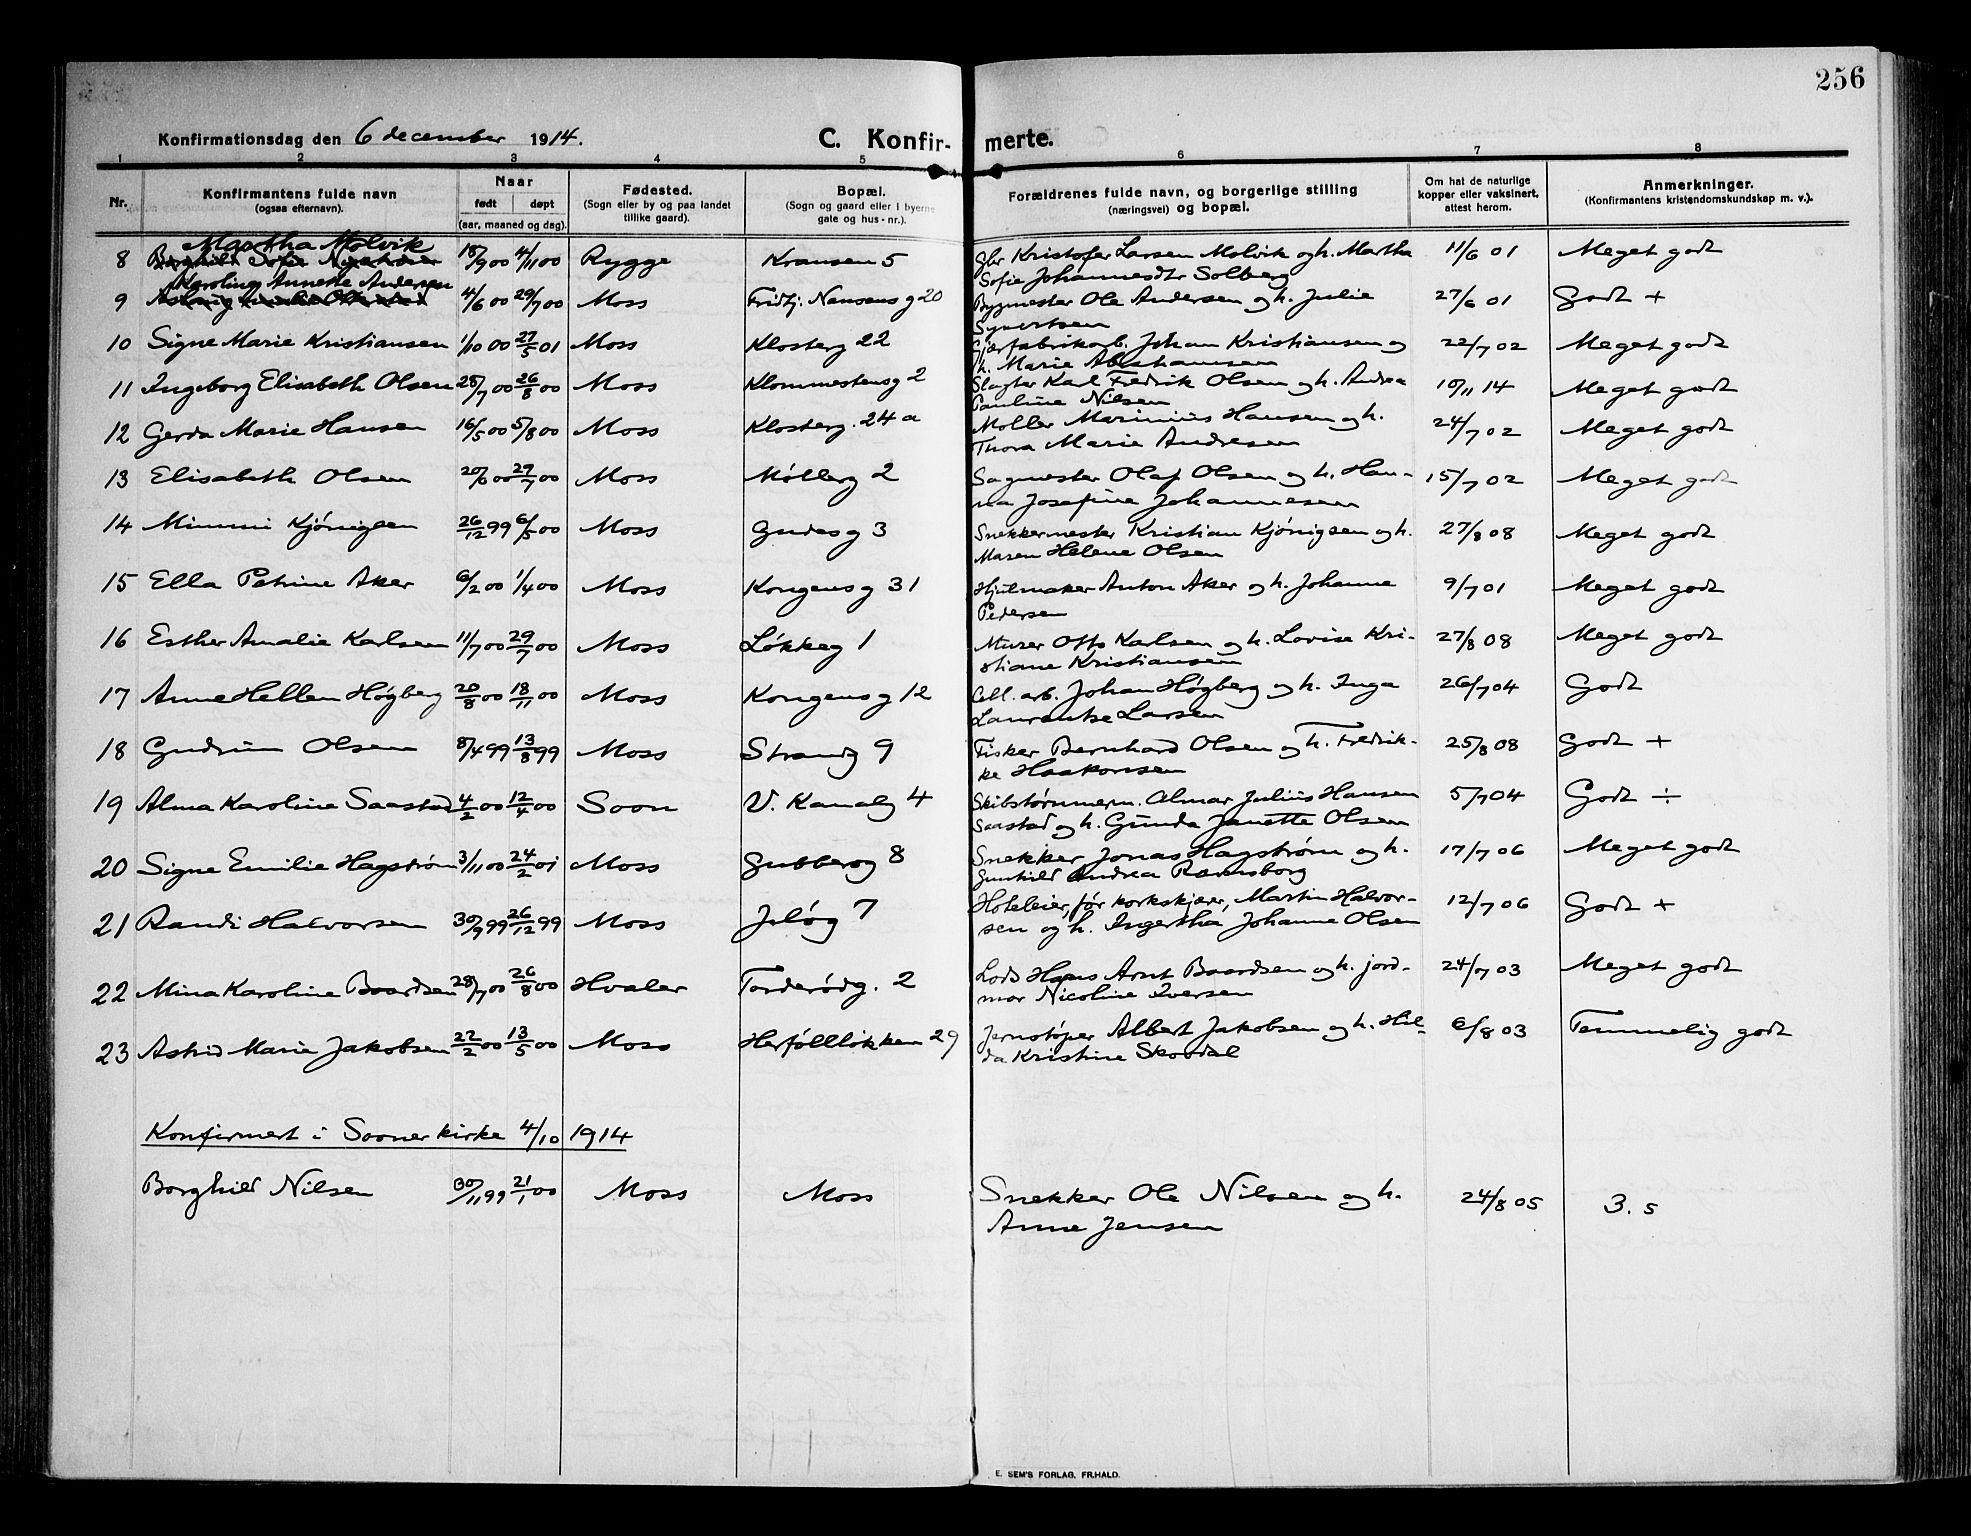 256
Konfirmationsdag den 6 december 1914.
C. Konfir- merte.
1 2 3 4 5 6 7 8
Nr. Konfirmantens fulde navn (ogsaa efternavn). Naar født døpt (aar, maaned og dag). Fødested. (Sogn eller by og paa landet tillike gaard). Bopæl. (Sogn og gaard eller i byerne gate og hus-nr.). Forældrenes fulde navn, og borgerlige stilling (næringsvei) og bopæl. Om hat de naturlige kopper eller vaksinert, attest herom. Anmerkninger. (Konfirmantens kristendomskundskap m. v.).
Martha Molvik
8 18/9 00 4/11 00 Rygge Kransen 5 Gbr Kristofer Larsen Molvik og h. Martha 11/6 01 Meget godt
Sofie Johannesdtr Solberg
Karoline Annette Andersen
9 4/6 00 29/7 00 Moss Fridtj. Nansens g 20 Bygmester Ole Andersen og h. Julie 27/6 01 Godt +
Syvertsen
10 Signe Marie Kristiansen 1/10 00 27/5 01 Moss Klosterg 22 Gjærfabrikarb. Johan Kristiansen og 22/7 02 Meget godt
h. Marie Abrahamsen
11 Ingeborg Elisabeth Olsen 28/7 00 26/8 00 Moss Klommestensg 2 Slagter Karl Fredrik Olsen og h. Andrea 10/11 14 Meget godt
Pauline Nilsen
12 Gerda Marie Hansen 16/5 00 5/8 00 Moss Klosterg. 24 a Møller Marinius Hansen og h. 24/7 02 Meget godt
Thora Marie Andresen
13 Elisabeth Olsen 20/6 00 29/7 00 Moss Møllerg 2 Sagmester Olaf Olsen og h. Han- 15/7 02 Meget godt
na Josefine Johannesen
14 Mimmi Kjönigsen 26/12 99 6/5 00 Moss Gudes g 3 Snekkermester Kristian Kjönigsen og h. 27/8 08 Meget godt
Maren Helene Olsen
15 Ella Petrine Aker 6/2 00 1/4 00 Moss Kongens g 31 Hjulmaker Anton Aker og h. Johanne 9/7 01 Meget godt
Pedersen
16 Esther Amalie Karlsen 11/7 00 29/7 00 Moss Løkkeg 1 Murer Otto Karlsen og h. Lovise Kri- 27/8 08 Meget godt
stiane Kristiansen
17 Anne Hellen Högberg 20/8 00 18/11 00 Moss Kongens g 12 Cell. arb. Johan Högberg og h. Inga 26/7 04 Godt
Laurentse Larsen
18 Gudrun Olsen 8/4 99 13/8 99 Moss Strandg 9 Fisker Bernhard Olsen og h. Fredrik- 25/8 08 Godt +
ke Haakonsen
19 Alma Karoline Saastad 4/2 00 12/4 00 Soon V. Kanalg 4 Skibstømmerm. Elmar Julius Hansen 5/7 04 Godt ÷
Saastad og h. Gunda Janette Olsen
20 Signe Emilie Hagstrøm 3/11 00 24/2 01 Moss Gubberog 8 Snekker Jonas Hagstrøm og h. 17/7 06 Meget godt
Gunhild Andrea Ramsborg
21 Randi Halvorsen 30/9 99 26/12 99 Moss Jeløg 7 Hoteleier, før korkskjærer, Martin Halvor- 12/7 06 Godt +
sen og h. Ingertha Johanne Olsen
22 Mina Karoline Baardsen 28/7 00 26/8 00 Hvaler Torderødg. 2 Lods Hans Arnt Baardsen og h. jord- 24/7 03 Meget godt
mor Nicoline Iversen
23 Astrid Marie Jakobsen 22/2 00 13/5 00 Moss Herföllløkken 29 Jernstøper Albert Jakobsen og h. Hil- 6/8 03 Temmelig godt
da Kristine Skovdal
Konfirmert i Sooner kirke 4/10 1914
Borghild Nilsen 30/11 99 21/1 00 Moss Moss Snekker Ole Nilsen og h. 24/8 05 3. 5
Anne Jensen
E. SEM'S FORLAG, FR.HALD.